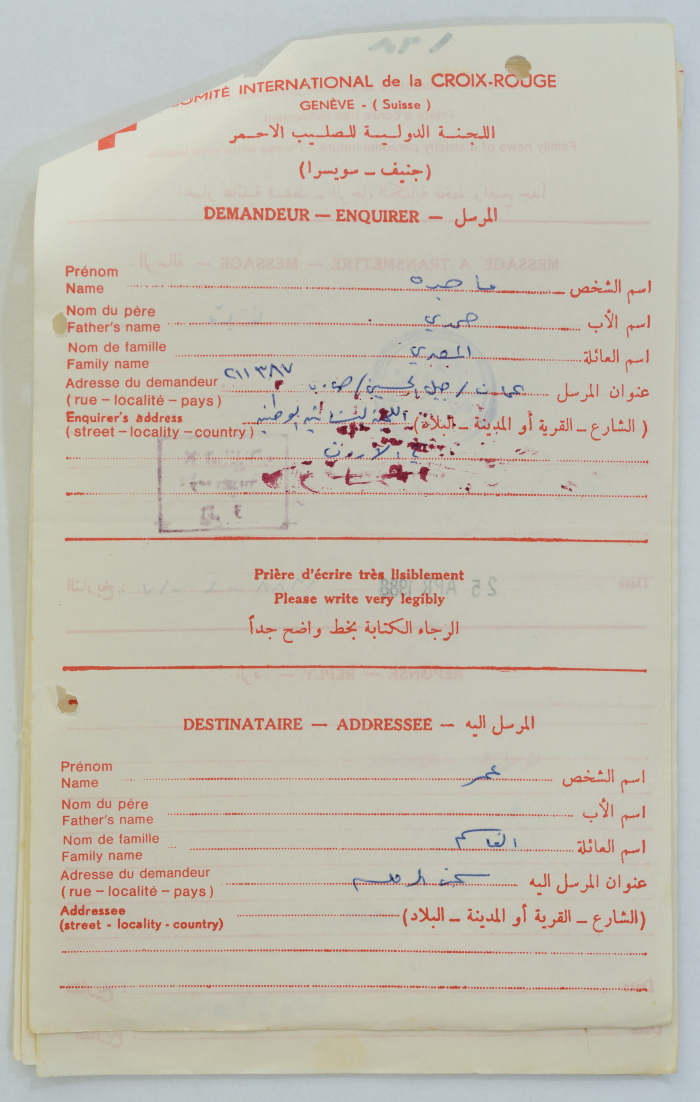 COMITÉ INTERNATIONAL de la CROIX-ROUGE
GENÈVE - ( Suisse )
اللجنـة الدوليـة للصليب الاحمر
(جنيف ـ سويسرا)
DEMANDEUR — ENQUIRER — المرسل
Prénom
Name ماجده اسم الشخص
Nom du père
Father's name حمدي اسم الأب
Nom de famille
Family name المصري اسم العائلة
Adresse du demandeur ٢١١٣٨٧ عمان / جبل الحسين / ص.ب عنوان المرسل
( rue – localité – pays )
Enquirer's address اللجنة النسائيه الوطنيه (الشارع ـ القرية أو المدينة ـ البلاد)
( street – locality – country )
في الاردن
25 APR 1988
Prière d'écrire très lisiblement
Please write very legibly
الرجاء الكتابة بخط واضح جداً
DESTINATAIRE — ADDRESSEE — المرسل اليه
Prénom
Name عمر اسم الشخص
Nom du père
Father's name اسم الأب
Nom de famille
Family name القاسم اسم العائلة
Adresse du demandeur سجن الرمله عنوان المرسل اليه
( rue – localité – pays )
Addressee (الشارع ـ القرية أو المدينة ـ البلاد)
(street - locality - country)